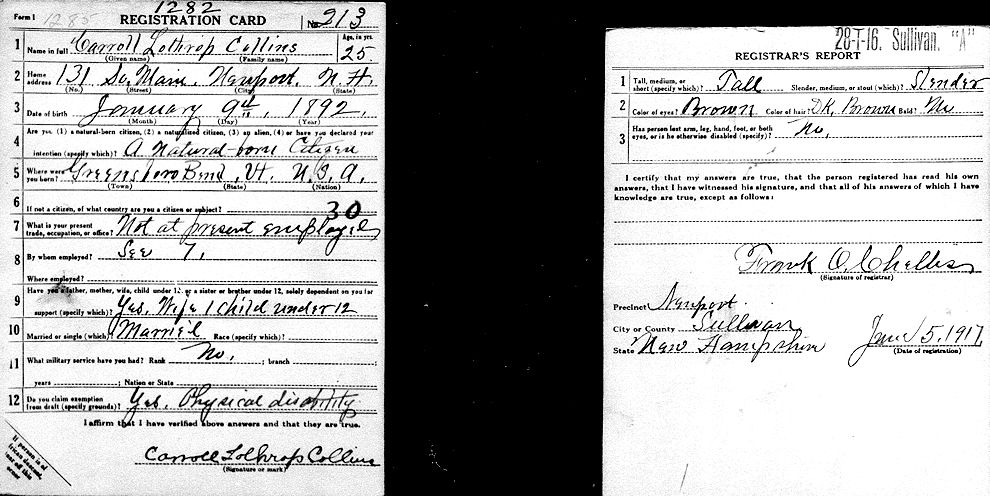 Form 1 1285 1282 REGISTRATION CARD No. 213
1 Name in full Carroll Lothrop Collins Age, in yrs. 25
(Given name) (Family name)
2 Home address 131 So. Main. Newport. N.H.
(No.) (Street) (City) (State)
3 Date of birth January 9th, 1892
(Month) (Day) (Year)
Are you (1) a natural-born citizen, (2) a naturalized citizen, (3) an alien, (4) or have you declared your
4 intention (specify which)? A Natural-born Citizen
5 Where were you born? Greensboro Bend, Vt. U.S.A.
(Town) (State) (Nation)
6 If not a citizen, of what country are you a citizen or subject?
30
7 What is your present trade, occupation, or office? Not at present employed
8 By whom employed? See 7.
Where employed?
Have you a father, mother, wife, child under 12, or a sister or brother under 12, solely dependent on you for
9 support (specify which)? Yes. Wife 1 Child under 12
10 Married or single (which) Married Race (specify which)?
11 What military service have you had? Rank No. ; branch
years ; Nation or State
12 Do you claim exemption from draft (specify grounds)? Yes. Physical disability
I affirm that I have verified above answers and that they are true.
Carroll Lothrop Collins
(Signature or mark)
If person is of
African descent,
tear off this
corner
28-1-16. Sullivan. "A"
REGISTRAR'S REPORT
1 Tall, medium, or short (specify which)? Tall Slender, medium, or stout (which)? Slender
2 Color of eyes? Brown Color of hair? DK. Brown Bald? No
3 Has person lost arm, leg, hand, foot, or both eyes, or is he otherwise disabled (specify)? No.
I certify that my answers are true, that the person registered has read his own
answers, that I have witnessed his signature, and that all of his answers of which I have
knowledge are true, except as follows:
Frank O. Chellis
(Signature of registrar)
Precinct Newport.
City or County Sullivan
State New Hampshire June 5, 1917
(Date of registration)